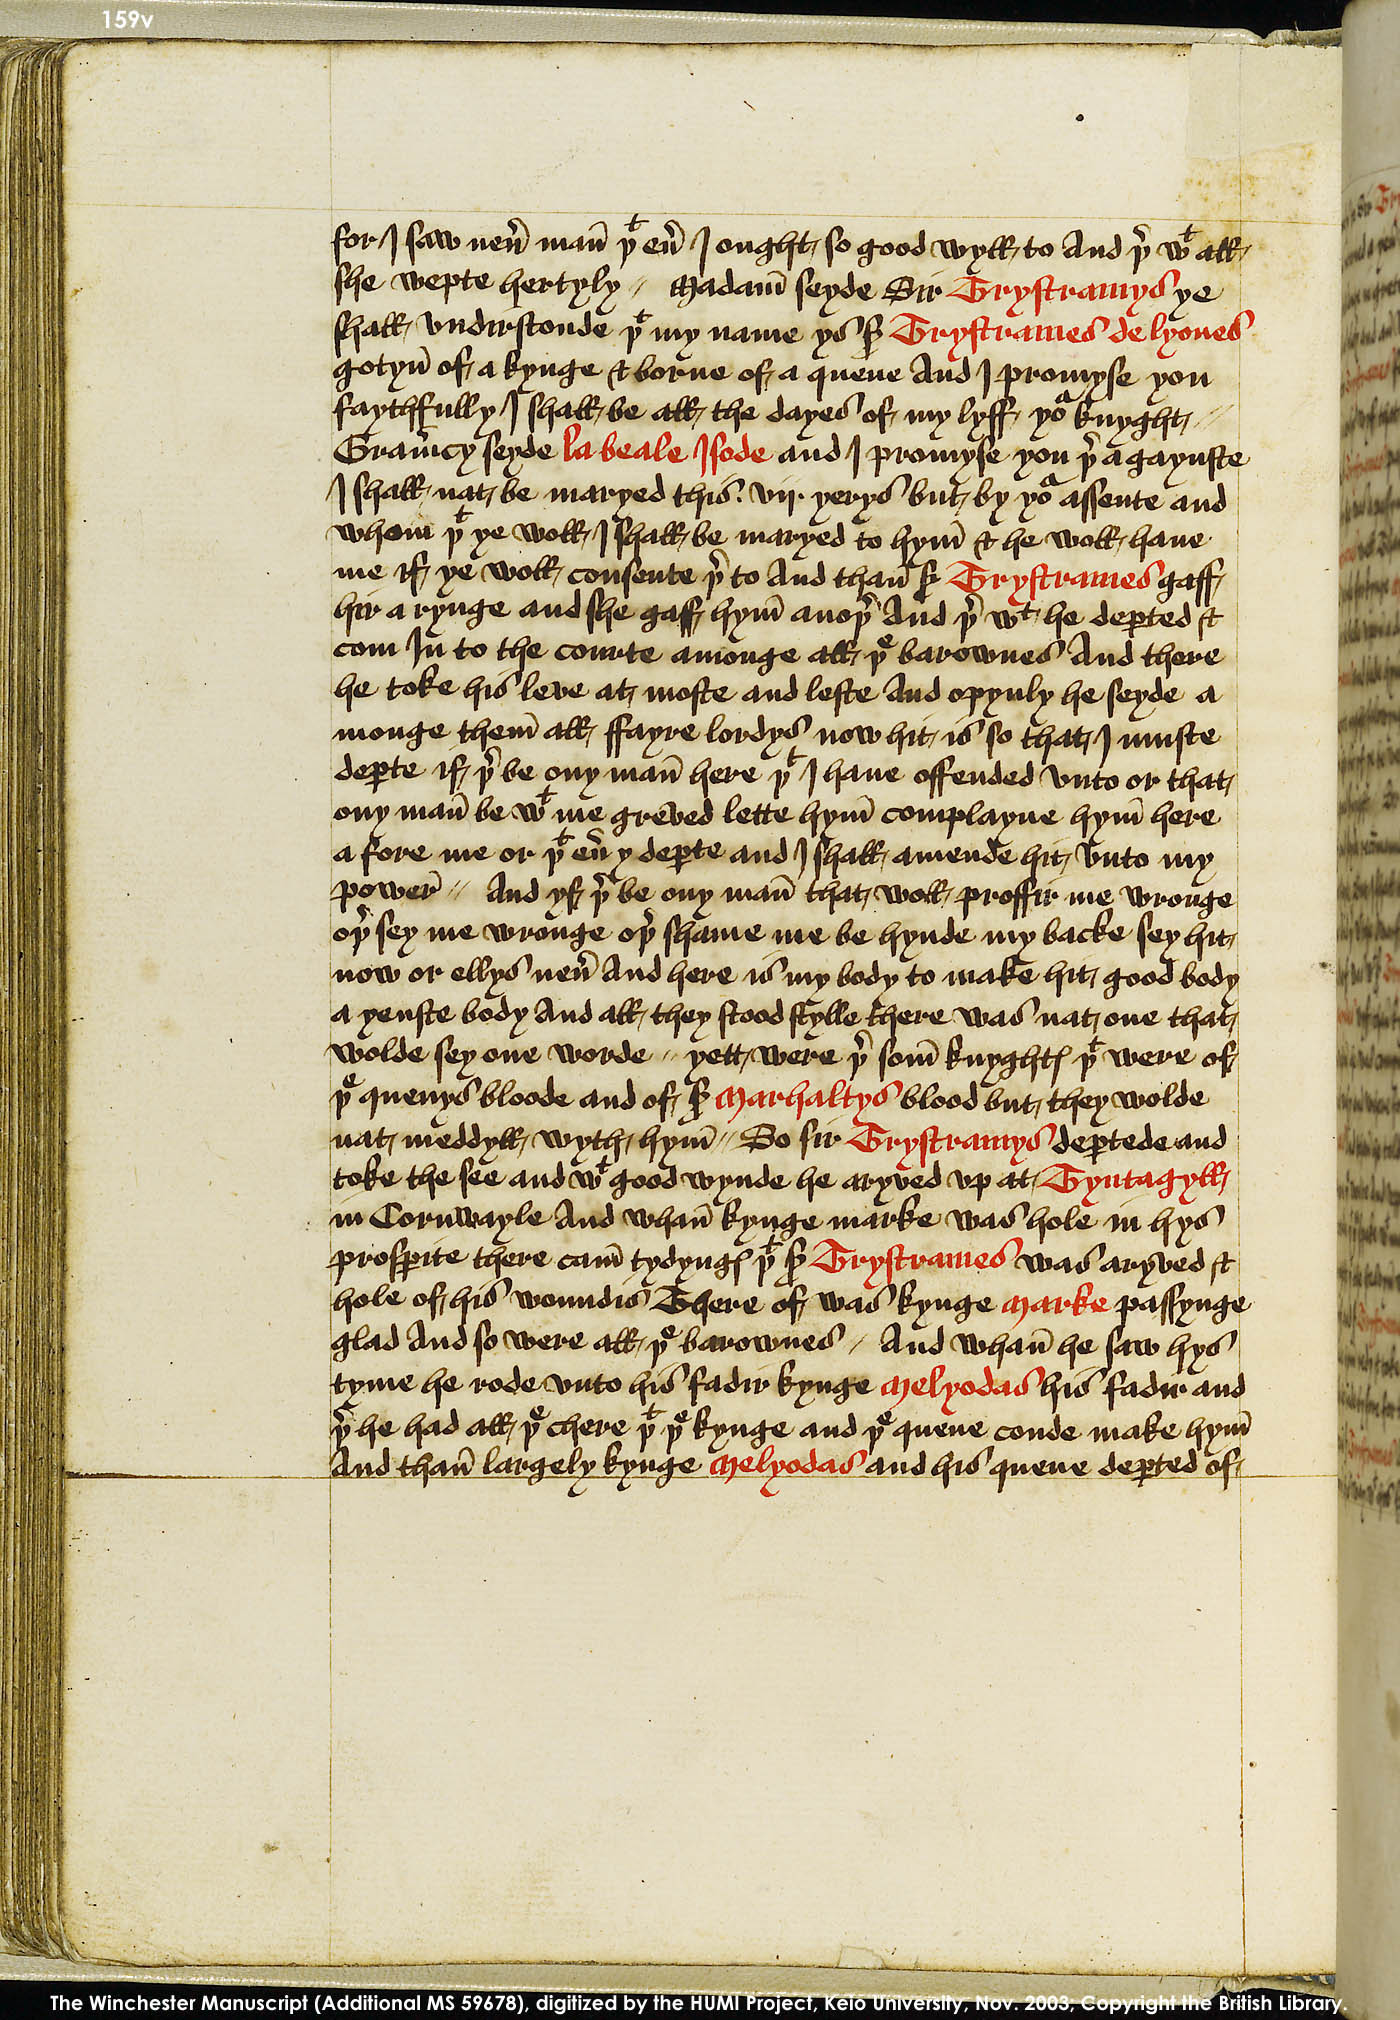 159v
for I saw neu̾ man̄ þᵗ eu̾ I ought so good wyll to And þ̾ wᵗ all
she wepte hertyly // Madam̄ seyde Sir Trystramys ye
shall vndirstonde þᵗ my name ys sʳ Trystrames de lyones
gotyn̄ of a kynge & borne of a quene And I promyse you
faythfully I shall be all the dayes of my lyff yoᵃ knyght //
Gram̾cy seyde la beale Isode and I promyse you þ̾ a gaynste
I shall nat be maryed this . vij . yerys but by yoᵃ assente and
whom þᵗ ye woll I shall be maryed to hym̄ & he woll haue
me if ye woll consente þ̾ to And than̄ sʳ Trystrames gaff
hir a rynge and she gaff hym̄ anoþ̾ And þ̾ wᵗ he deꝑted &
com In to the courte amonge all þᵉ barownes And there
he toke his leve at moste and leste And opynly he seyde a
monge them̄ all ffayre lordys now hit is so that I muste
deꝑte if þ̾ be ony man̄ here þᵗ I haue offended vnto or that
ony man̄ be wᵗ me greved lette hym̄ complayne hym̄ here
a fore me or þᵗ eu̾ y deꝑte and I shall amende hit vnto my
power̄ // And yf þ̾ be ony man̄ that woll proffir me wronge
oþ̾ sey me wronge oþ̾ shame me be hynde my backe sey hit
now or ellys neu̾ And here is my body to make hit good body
a yenste body And all they stood stylle there was nat one that
wolde sey one worde // yett were þ̾ som̄ knyghtꝭ þᵗ were of
þᵉ quenys bloode and of sʳ Marhaltys blood but they wolde
nat meddyll wyth hym̄ // So sir Trystramys deꝑtede and
toke the see and wᵗ good wynde he aryved vp at Tyntagyll
in Cornwayle And whan̄ kynge marke was hole in hys
prosꝑite there cam̄ tydyngꝭ þᵗ sʳ Trystrames was aryved &
hole of his woundis There of was kynge Marke passynge
glad And so were all þᵉ barownes / And whan̄ he saw hys
tyme he rode vnto his fadir kynge Melyodas his fadir and
þ̾ he had all þᵉ chere þᵗ þᵉ kynge and þᵉ quene coude make hym̄
And than̄ largely kynge Melyodas and his quene deꝑted of
The Winchester Manuscript (Additional MS 59678), digitized by the HUMI Project, Keio University, Nov. 2003; Copyright the British Library.